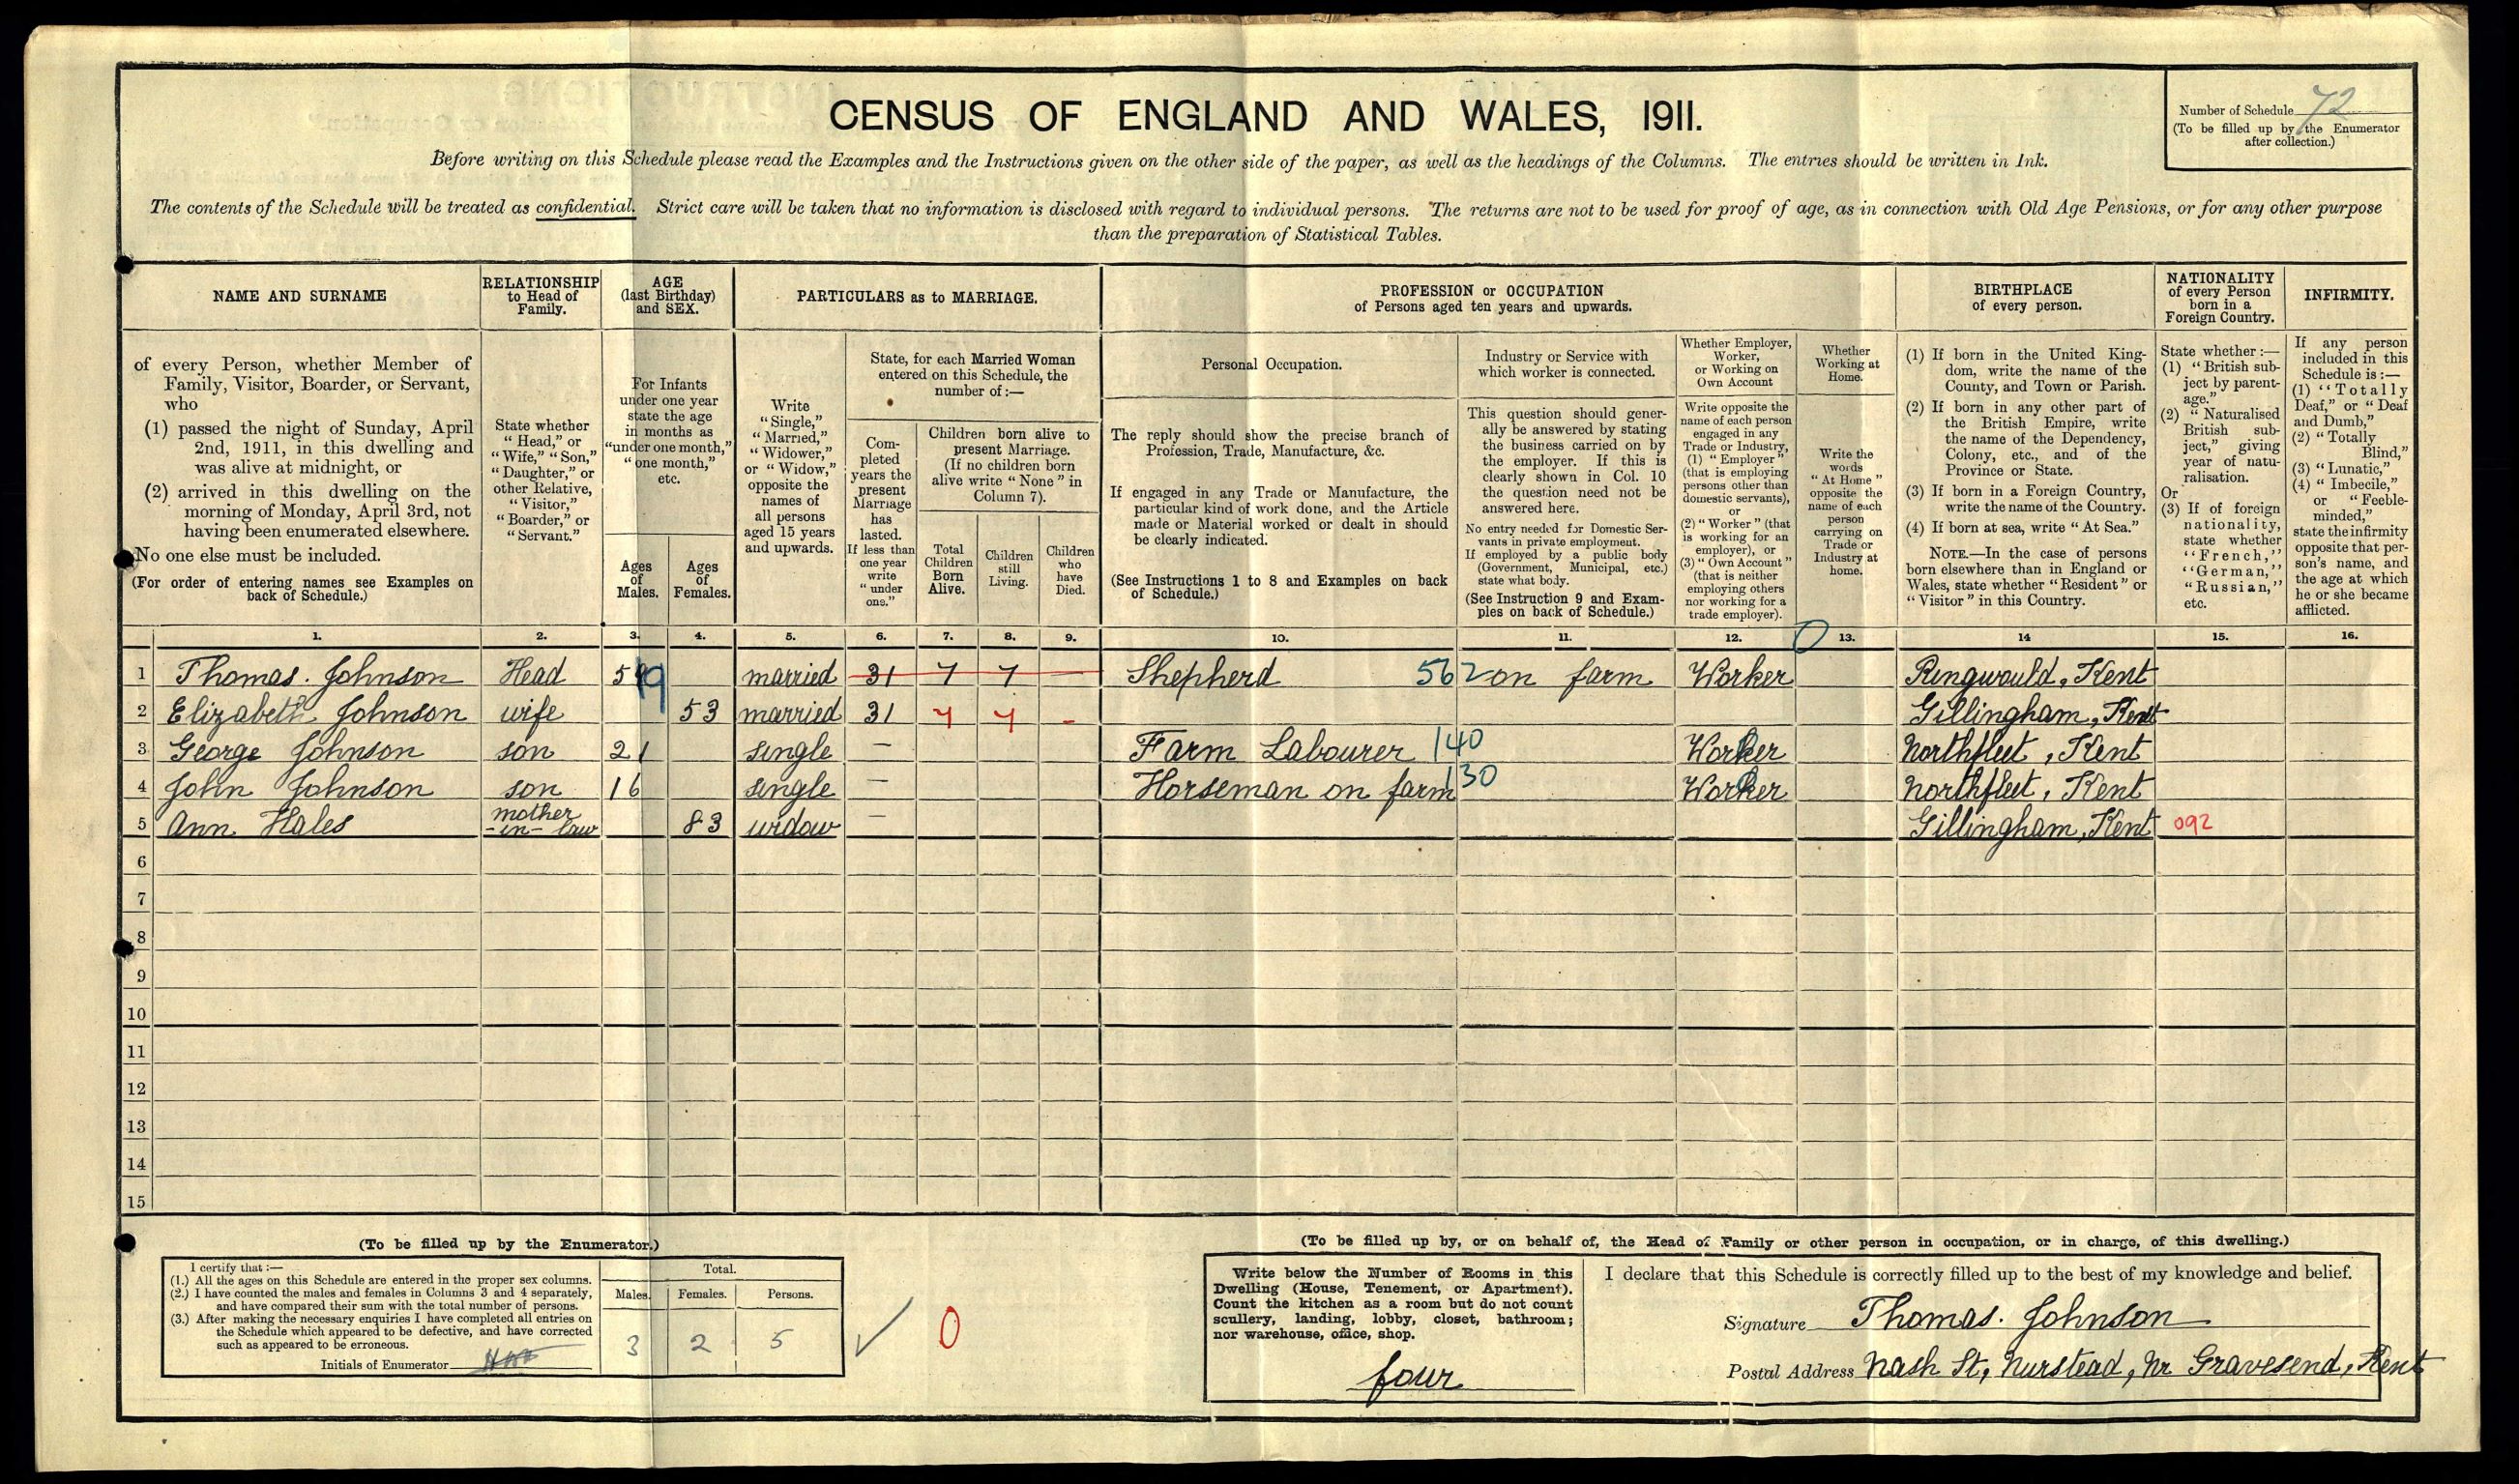 CENSUS OF ENGLAND AND WALES, 1911.
Number of Schedule 72
(To be filled up by the Enumerator
after collection.)
Before writing on this Schedule please read the Examples and the Instructions given on the other side of the paper, as well as the headings of the Columns. The entries should be written in Ink.
The contents of the Schedule will be treated as confidential. Strict care will be taken that no information is disclosed with regard to individual persons. The returns are not to be used for proof of age, as in connection with Old Age Pensions, or for any other purpose
than the preparation of Statistical Tables.
NAME AND SURNAME
RELATIONSHIP
to Head of
Family.
AGE
(last Birthday)
and SEX.
PARTICULARS as to MARRIAGE.
PROFESSION or OCCUPATION
of Persons aged ten years and upwards.
BIRTHPLACE
of every person.
NATIONALITY
of every Person
born in a
Foreign Country.
INFIRMITY.
of every Person, whether Member of
Family, Visitor, Boarder, or Servant,
who
(1) passed the night of Sunday, April
2nd, 1911, in this dwelling and
was alive at midnight, or
(2) arrived in this dwelling on the
morning of Monday, April 3rd, not
having been enumerated elsewhere.
No one else must be included.
(For order of entering names see Examples on
back of Schedule.)
State whether
"Head," or
"Wife," "Son,"
"Daughter," or
other Relative,
"Visitor,"
"Boarder," or
"Servant."
For Infants
under one year
state the age
in months as
"under one month,"
"one month,"
etc.
Ages
of
Males.
Ages
of
Females.
Write
"Single,"
"Married,"
"Widower,"
or "Widow,"
opposite the
names of
all persons
aged 15 years
and upwards.
State, for each Married Woman
entered on this Schedule, the
number of:—
Com-
pleted
years the
present
Marriage
has
lasted.
If less than
one year
write
"under
one."
Children born alive to
present Marriage.
(If no children born
alive write "None" in
Column 7).
Total
Children
Born
Alive.
Children
still
Living.
Children
who
have
Died.
Personal Occupation.
The reply should show the precise branch of
Profession, Trade, Manufacture, &c.
If engaged in any Trade or Manufacture, the
particular kind of work done, and the Article
made or Material worked or dealt in should
be clearly indicated.
(See Instructions 1 to 8 and Examples on back
of Schedule.)
Industry or Service with
which worker is connected.
This question should gener-
ally be answered by stating
the business carried on by
the employer. If this is
clearly shown in Col. 10
the question need not be
answered here.
No entry needed for Domestic Ser-
vants in private employment.
If employed by a public body
(Government, Municipal, etc.)
state what body.
(See Instruction 9 and Exam-
ples on back of Schedule.)
Whether Employer,
Worker,
or Working on
Own Account
Write opposite the
name of each person
engaged in any
Trade or Industry,
(1) "Employer"
(that is employing
persons other than
domestic servants),
or
(2) "Worker" (that
is working for an
employer), or
(3) "Own Account"
(that is neither
employing others
nor working for a
trade employer).
Whether
Working at
Home.
Write the
words
"At Home"
opposite the
name of each
person
carrying on
Trade or
Industry at
home.
(1) If born in the United King-
dom, write the name of the
County, and Town or Parish.
(2) If born in any other part of
the British Empire, write
the name of the Dependency,
Colony, etc., and of the
Province or State.
(3) If born in a Foreign Country,
write the name of the Country.
(4) If born at sea, write "At Sea."
NOTE.—In the case of persons
born elsewhere than in England or
Wales, state whether "Resident" or
"Visitor" in this Country.
State whether:—
(1) "British sub-
ject by parent-
age."
(2) "Naturalised
British sub-
ject," giving
year of natu-
ralisation.
Or
(3) If of foreign
nationality,
state whether
"French,"
"German,"
"Russian,"
etc.
If any person
included in this
Schedule is:—
(1) "Totally
Deaf," or "Deaf
and Dumb,"
(2) "Totally
Blind,"
(3) "Lunatic,"
(4) "Imbecile,"
or "Feeble-
minded,"
state the infirmity
opposite that per-
son's name, and
the age at which
he or she became
afflicted.
1. 2. 3. 4. 5. 6. 7. 8. 9. 10. 11. 12. 0 13. 14 15. 16.
1 Thomas. Johnson Head 59 married 31 7 7 — Shepherd 562 on farm Worker Ringwould, Kent
2 Elizabeth Johnson wife 53 married 31 7 7 - Gillingham, Kent
3 George Johnson son 21 single — Farm Labourer 140 Worker Northfleet, Kent
4 John Johnson son 16 single — Horseman on farm 130 Worker Northfleet, Kent
5 Ann Hales mother -in-law 83 widow — Gillingham, Kent 092
6
7
8
9
10
11
12
13
14
15
(To be filled up by the Enumerator.)
I certify that:—
(1.) All the ages on this Schedule are entered in the proper sex columns.
(2.) I have counted the males and females in Columns 3 and 4 separately,
and have compared their sum with the total number of persons.
(3.) After making the necessary enquiries I have completed all entries on
the Schedule which appeared to be defective, and have corrected
such as appeared to be erroneous.
Initials of Enumerator
Total.
Males. Females. Persons.
3 2 5
0
(To be filled up by, or on behalf of, the Head of Family or other person in occupation, or in charge, of this dwelling.)
Write below the Number of Rooms in this
Dwelling (House, Tenement, or Apartment).
Count the kitchen as a room but do not count
scullery, landing, lobby, closet, bathroom;
nor warehouse, office, shop.
four
I declare that this Schedule is correctly filled up to the best of my knowledge and belief.
Signature Thomas. Johnson
Postal Address Nash St, Nurstead, Nr Gravesend, Kent